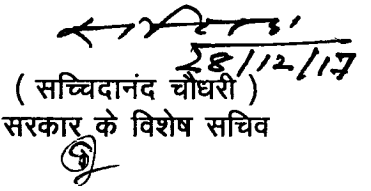 28/12/17
( सच्चिदानंद चौधरी )
सरकार के विशेष सचिव